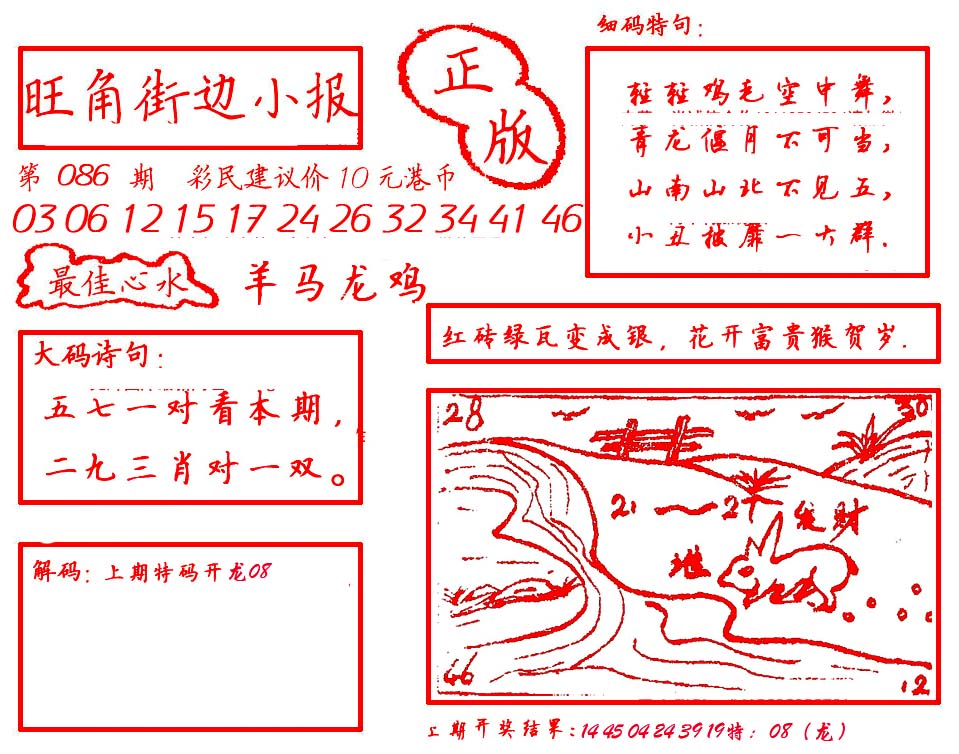 细码特句：
旺角街边小报
正版
轻轻鸡毛空中舞，
青龙偃月不可当，
山南山北不见五，
小丑披靡一大群.
第 086 期 彩民建议价 10 元港币
03 06 12 15 17 24 26 32 34 41 46
最佳心水 羊马龙鸡
红砖绿瓦变成银，花开富贵猴贺岁.
大码诗句：
五七一对看本期，
二九三肖对一双。
28 30
21 — 2
发财
46 12
解码：上期特码开龙08
上期开奖结果：14 45 04 24 39 19特：08（龙）